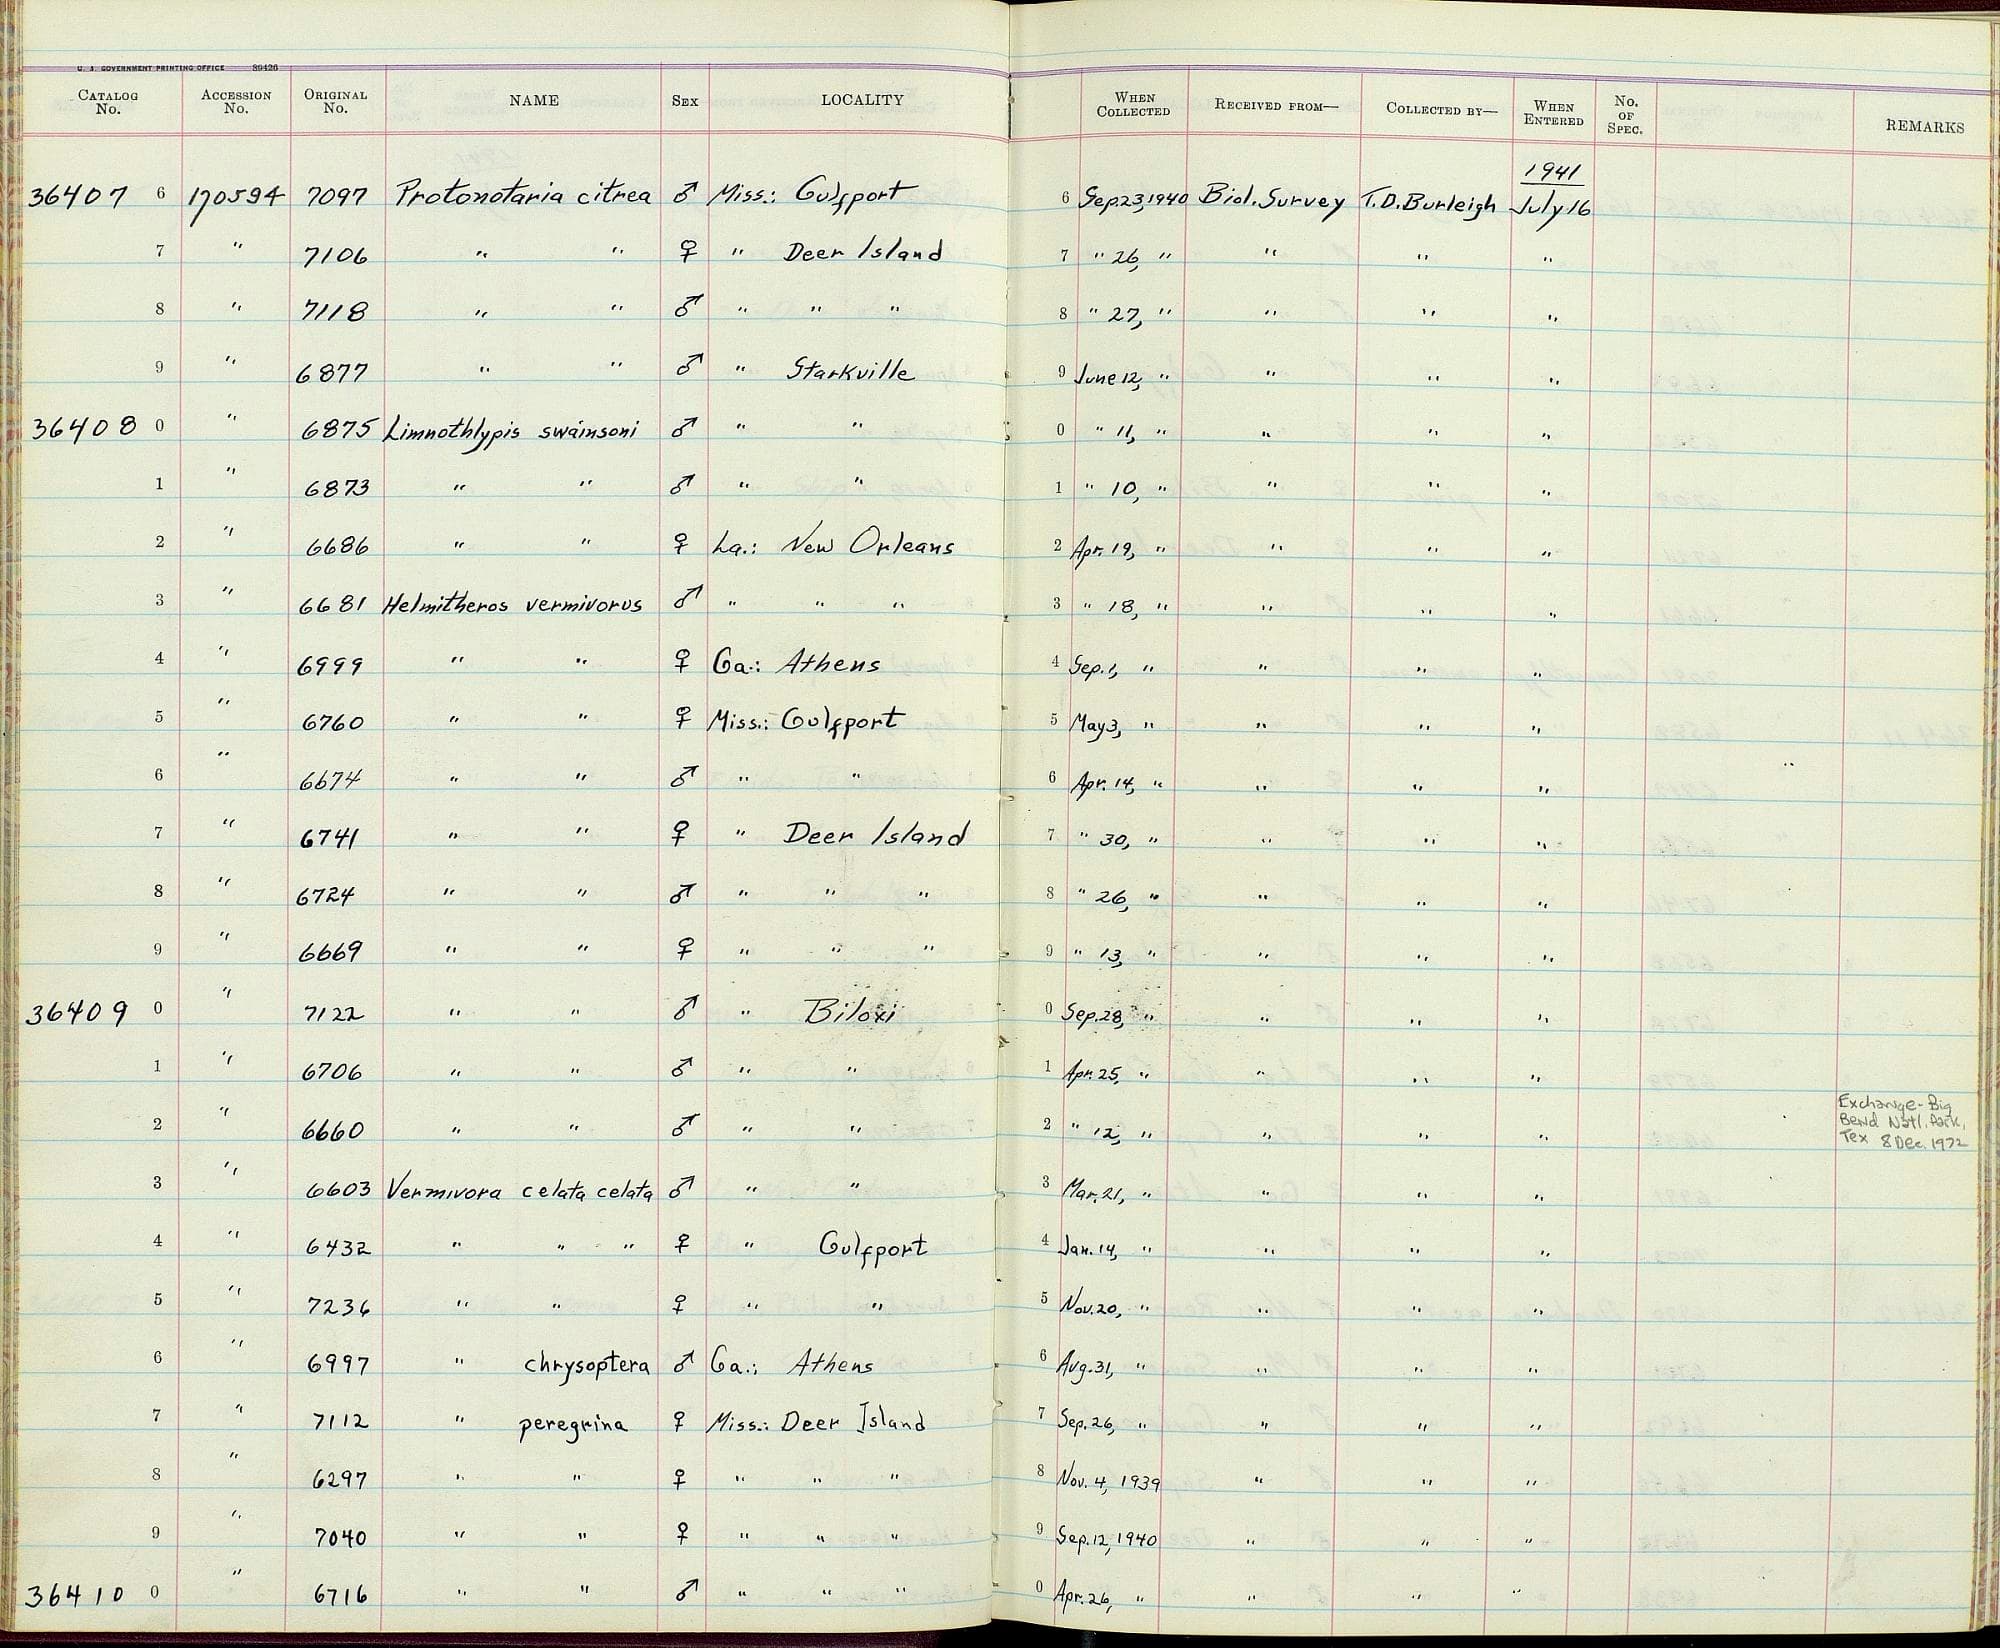 U. S. GOVERNMENT PRINTING OFFICE 39426
CATALOG No. ACCESSION No. ORIGINAL No. NAME SEX LOCALITY WHEN COLLECTED RECEIVED FROM— COLLECTED BY— WHEN ENTERED No. OF SPEC. REMARKS
1941
36407 6 170594 7097 Protonotaria citrea ♂ Miss.: Gulfport 6 Sep.23,1940 Biol. Survey T.D. Burleigh July 16
7 " 7106 " " ♀ " Deer Island 7 " 26, " " " "
8 " 7118 " " ♂ " " " 8 " 27, " " " "
9 " 6877 " " ♂ " Starkville 9 June 12, " " " "
36408 0 " 6875 Limnothlypis swainsoni ♂ " " 0 " 11, " " " "
1 " 6873 " " ♂ " " 1 " 10, " " " "
2 " 6686 " " ♀ La.: New Orleans 2 Apr. 19, " " " "
3 " 6681 Helmitheros vermivorus ♂ " " " 3 " 18, " " " "
4 " 6999 " " ♀ Ga.: Athens 4 Sep. 1, " " " "
5 " 6760 " " ♀ Miss.: Gulfport 5 May 3, " " " "
6 " 6674 " " ♂ " " 6 Apr. 14, " " " "
7 " 6741 " " ♀ " Deer Island 7 " 30, " " " "
8 " 6724 " " ♂ " " " 8 " 26, " " " "
9 " 6669 " " ♀ " " " 9 " 13, " " " "
36409 0 " 7122 " " ♂ " Biloxi 0 Sep. 28, " " " "
1 " 6706 " " ♂ " " 1 Apr. 25, " " " "
2 " 6660 " " ♂ " " 2 " 12, " " " " Exchange - Big
Bend Natl. Park,
Tex 8 Dec. 1972
3 " 6603 Vermivora celata celata ♂ " " 3 Mar. 21, " " " "
4 " 6432 " " " ♀ " Gulfport 4 Jan. 14, " " " "
5 " 7236 " " ♀ " " 5 Nov. 20, " " " "
6 " 6997 " chrysoptera ♂ Ga.: Athens 6 Aug. 31, " " " "
7 " 7112 " peregrina ♀ Miss.: Deer Island 7 Sep. 26, " " " "
8 " 6297 " " ♀ " " " 8 Nov. 4, 1939 " " "
9 " 7040 " " ♀ " " " 9 Sep. 12, 1940 " " "
36410 0 " 6716 " " ♂ " " " 0 Apr. 26, " " " "